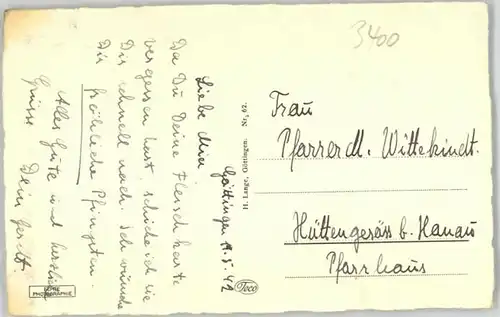 3400
Göttingen 19.5.42
Liebe Mia
Da Du Deine Fleischkarte
vergessen hast, schicke ich sie
Dir schnell nach. Ich wünsche
Dir fröhliche Pfingsten.
Alles Gute und herzliche
Grüsse Dein Gerdt.
H. Lange, Göttingen. Nr. 62.
Frau
Pfarrer M. Wittekindt.
Hüttengesäss b. Hanau
Pfarrhaus
ECHTE
PHOTOGRAPHIE